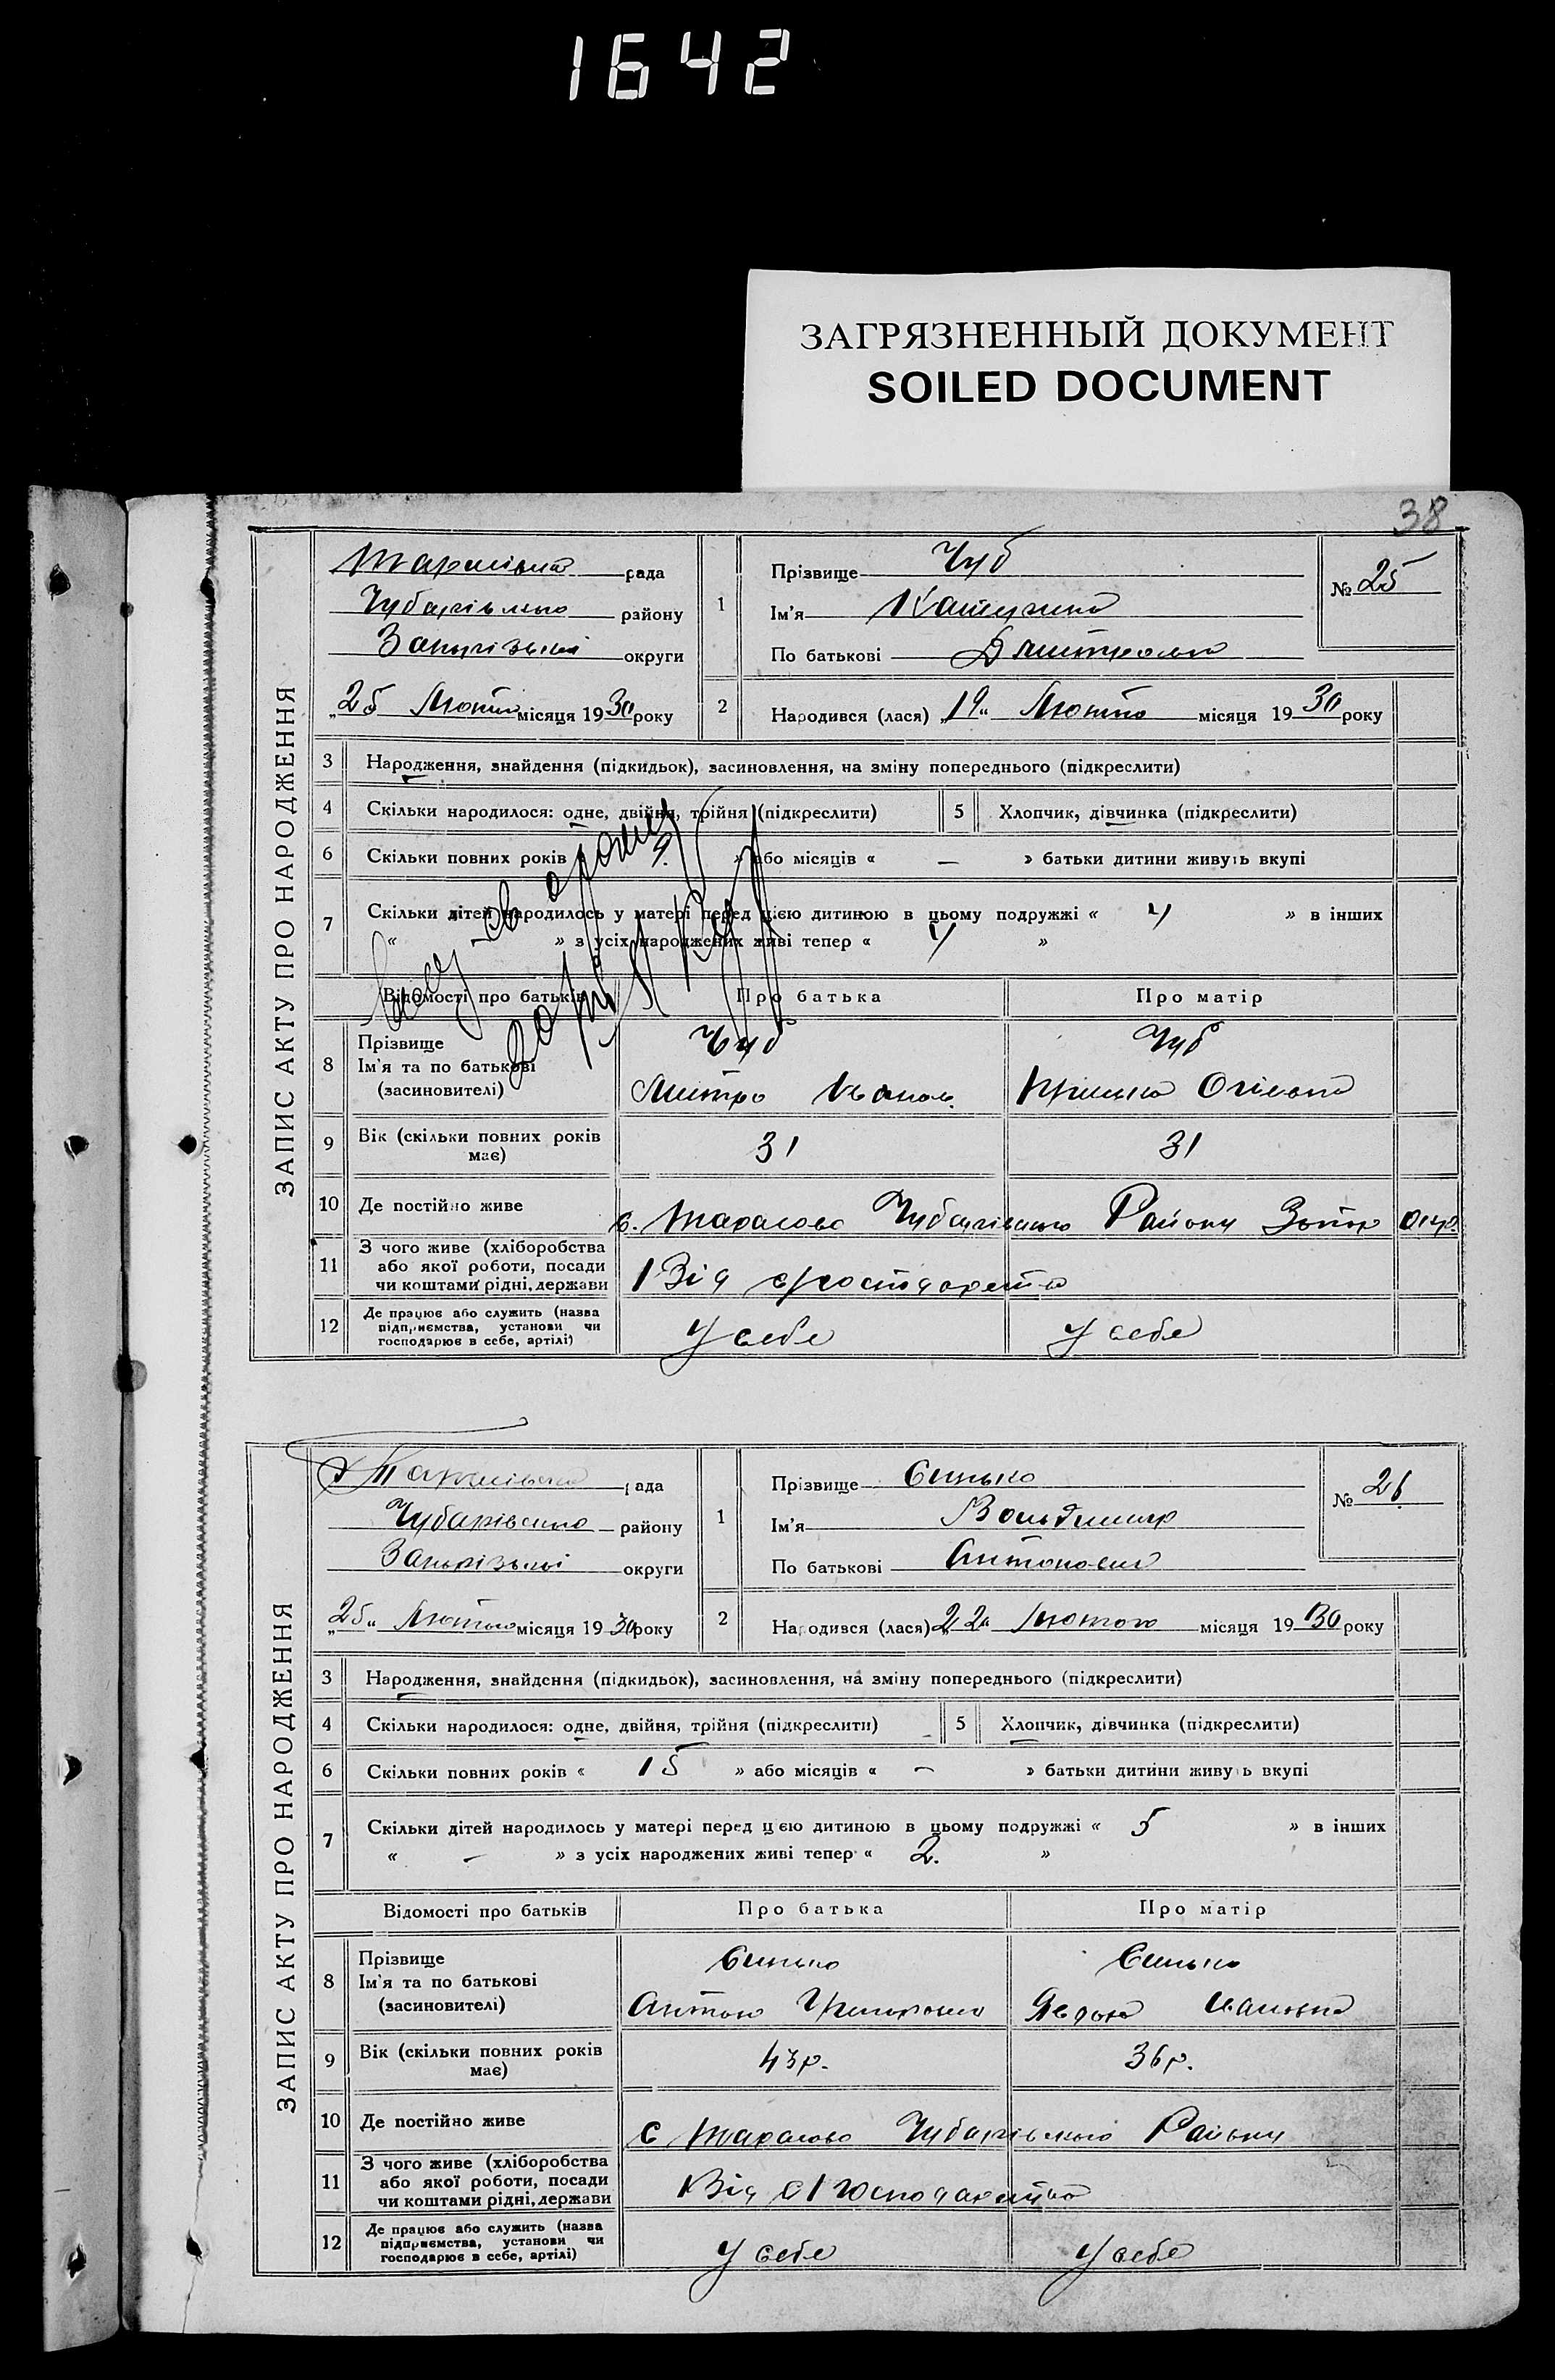 1642
ЗАГРЯЗНЕННЫЙ ДОКУМЕНТ
SOILED DOCUMENT
38
ЗАПИС АКТУ ПРО НАРОДЖЕННЯ
рада
району
округи
„25 Лютого місяця 1930 року
1
Прізвище Чуб
Ім'я
По батькові
№ 25
2
Народився (лася) „19“ Лютого місяця 1930 року
3 Народження, знайдення (підкидьок), засиновлення, на зміну попереднього (підкреслити)
4 Скільки народилося: одне, двійня, трійня (підкреслити)
5 Хлопчик, дівчинка (підкреслити)
6 Скільки повних років « 9. » або місяців « — » батьки дитини живуть вкупі
7 Скільки дітей народилось у матері перед цією дитиною в цьому подружжі « 4 » в інших
« » з усіх народжених живі тепер « 4 »
Відомості про батьків
Про батька
Про матір
8 Прізвище
Ім'я та по батькові
(засиновителі)
Чуб
Чуб
9 Вік (скільки повних років
має)
31
31
10 Де постійно живе
с. Тарасовка Чубарівського Району
11 З чого живе (хліборобства
або якої роботи, посади
чи коштами рідні, держави
Від
12 Де працює або служить (назва
підприємства, установи чи
господарює в себе, артілі)
У себе
У себе
ЗАПИС АКТУ ПРО НАРОДЖЕННЯ
рада
Чубарівсько району
округи
„25“ Лютого місяця 1930 року
1
Прізвище Синько
Ім'я
По батькові Антонович
№ 26
2
Народився (лася) „22“ Лютого місяця 1930 року
3 Народження, знайдення (підкидьок), засиновлення, на зміну попереднього (підкреслити)
4 Скільки народилося: одне, двійня, трійня (підкреслити)
5 Хлопчик, дівчинка (підкреслити)
6 Скільки повних років « 15 » або місяців « – » батьки дитини живуть вкупі
7 Скільки дітей народилось у матері перед цією дитиною в цьому подружжі « 5 » в інших
« – » з усіх народжених живі тепер « 2. »
Відомості про батьків
Про батька
Про матір
8 Прізвище
Ім'я та по батькові
(засиновителі)
Синько
Антон
Синько
9 Вік (скільки повних років
має)
43р.
36р.
10 Де постійно живе
с Тарасовка Чубарівського Району
11 З чого живе (хліборобства
або якої роботи, посади
чи коштами рідні, держави
Від
12 Де працює або служить (назва
підприємства, установи чи
господарює в себе, артілі)
У себе
У себе